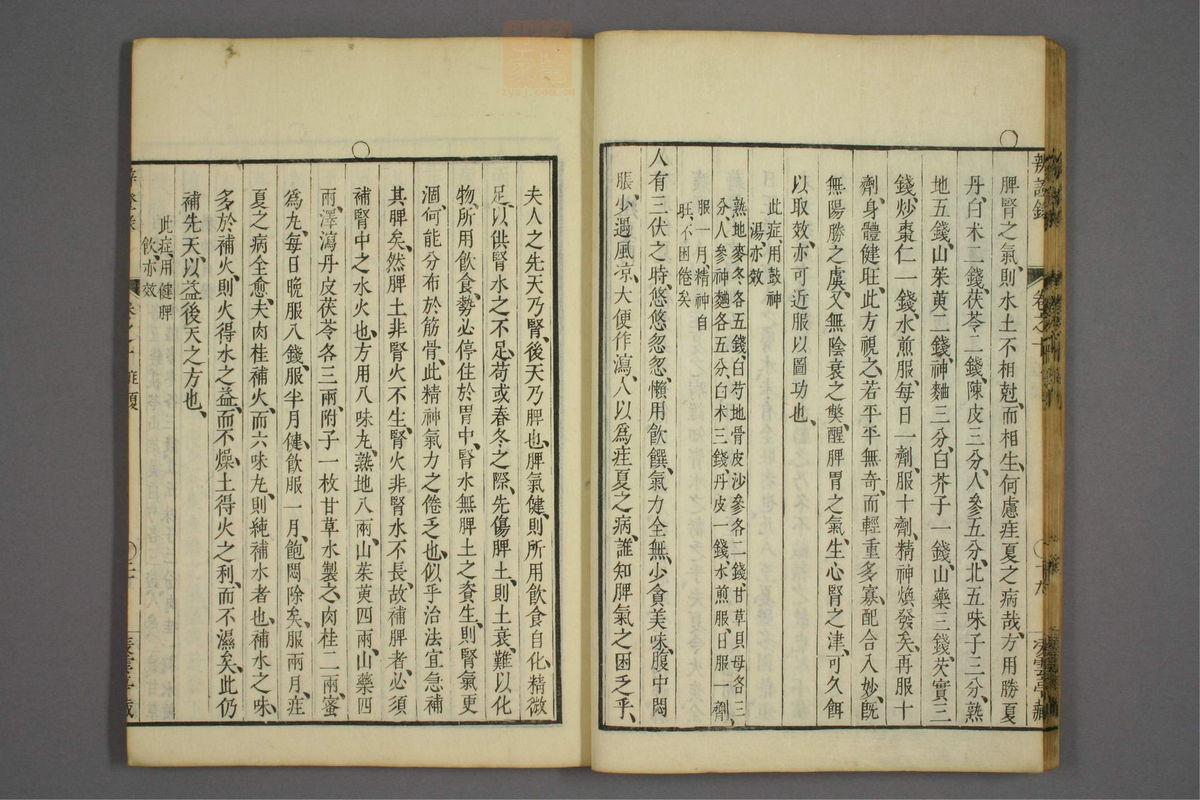 辨證錄
卷之十
十九
脾腎之氣則水土不相尅而相生何慮疰夏之病哉方用勝夏
丹白术二錢茯苓二錢陳皮三分人參五分北五味子三分熟
地五錢山茱萸二錢神麯三分白芥子一錢山藥三錢芡實三
錢炒棗仁一錢水煎服每日一劑服十劑精神煥發矣再服十
劑身體健旺此方視之若平平無奇而輕重多寡配合入妙旣
無陽勝之虞又無陰衰之獘醒脾胃之氣生心腎之津可久餌
以取效亦可近服以圖功也
此症用鼓神
湯亦效
熟地麥冬各五錢白芍地骨皮沙參各二錢甘草貝母各三
分人參神麯各五分白术三錢丹皮一錢水煎服日服一劑
服一月精神自
旺不困倦矣
人有三伏之時悠悠忽忽懶用飲饌氣力全無少貪美味腹中悶
脹少遇風凉大便作瀉人以爲疰夏之病誰知脾氣之困乏乎
夫人之先天乃腎後天乃脾也脾氣健則所用飲食自化精微
足以供腎水之不足苟或春冬之際先傷脾土則土衰難以化
物所用飲食勢必停住於胃中腎水無脾土之資生則腎氣更
涸何能分布於筋骨此精神氣力之倦乏也似乎治法宜急補
其脾矣然脾土非腎火不生腎火非腎水不長故補脾者必須
補腎中之水火也方用八味丸熟地八兩山茱萸四兩山藥四
兩澤瀉丹皮茯苓各三兩附子一枚甘草水製之肉桂二兩蜜
爲丸每日晚服八錢服半月健飲服一月飽悶除矣服兩月疰
夏之病全愈夫肉桂補火而六味丸則純補水者也補水之味
多於補火則火得水之益而不燥土得火之利而不濕矣此仍
補先天以益後天之方也
此症用健脾
飲亦效